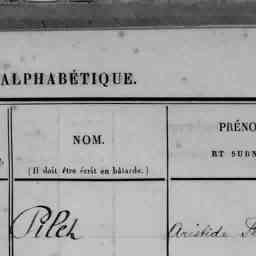 ALPHABÉTIQUE.
NOM.
(Il doit être écrit en bâtarde.)
PRÉNO
ET SURN
Pilch
Aristide